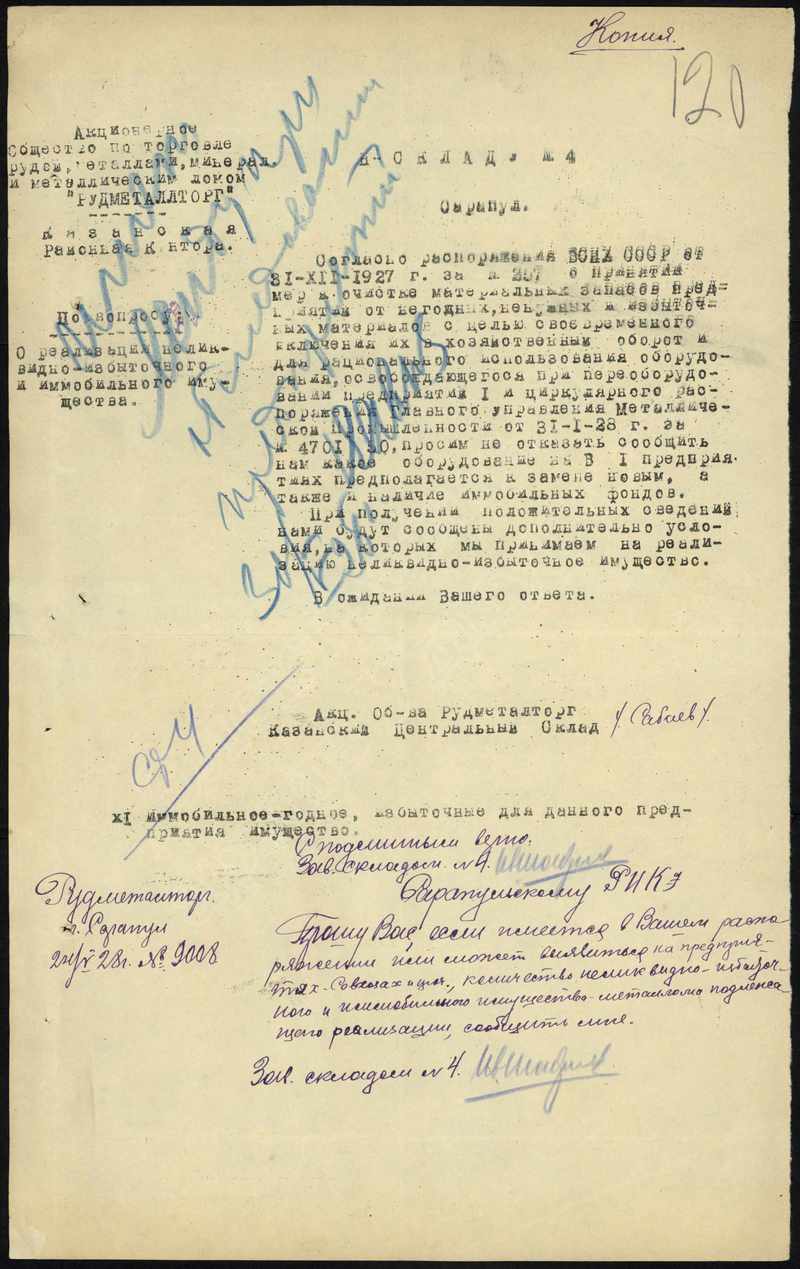 Копия.
120
Акционерное
Общество по торговле
рудой, металлами, минерал.
и металлическим ломом
"РУДМЕТАЛЛТОРГ"
Казанская
Районная Контора.
По вопросу:
О реализации нелик-
видно-избыточного
и иммобильного иму-
щества.
СКЛАД № 4
Сарапул.
Согласно распоряжения ВСНХ СССР от
31-XII-1927 г. за № 257 о принятии
мер к очистке материальных запасов пред-
приятий от негодних, ненужных и избыточ-
ных материалов с целью своевременного
включения их в хозяйственный оборот и
для рационального использования оборудо-
вания, освобождающегося при переоборудо-
вании предприятий I и циркулярного рас-
поряжения Главного управления Металличе-
ской Промышленности от 31-I-28 г. за
№ 4701 30, просим не отказать сообщить
нам какое оборудование на В I предприя-
тиях предполагается к замене новым, а
также и наличие иммобильных фондов.
При получении положительных сведений
нами будут сообщены дополнительно усло-
вия, на которых мы принимаем на реали-
зацию неликвидно-избыточное имущество.
В ожидании Вашего ответа.
Акц. Об-ва Рудметалторг
Казанский Центральный Склад /Сабаев/.
xI Иммобильное-годное, избыточные для данного пред-
приятия имущество.
С подлинным верно:
Зав. складом №4.
Рудметалторг.
г. Сарапул
28г. № 9008
Сарапульскому РИКу
Прошу Вас если имеется в Вашем распо-
ряжении или может выявиться на предприя-
тиях - Совхозах и проч., количество неликвидно-избыточ-
ного и иммобильного имущества-металлома подлежа-
щего реализации, сообщить мне.
Зав. складом №4.